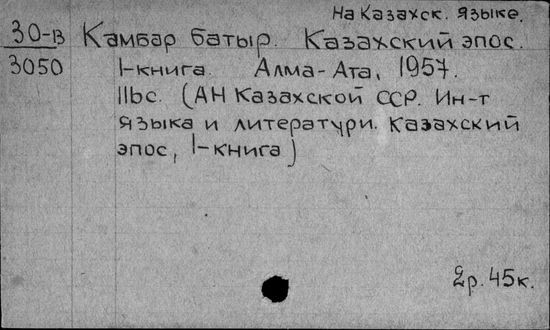 На Казахск. языке.
30-В Камбар батыр. Казахский эпос.
3050 I-книга. Алма-Ата, 1957.
IIбс. (АН Казахской ССР. Ин-т
языка и литератури. Казахский
эпос, I-книга)
2р. 45к.